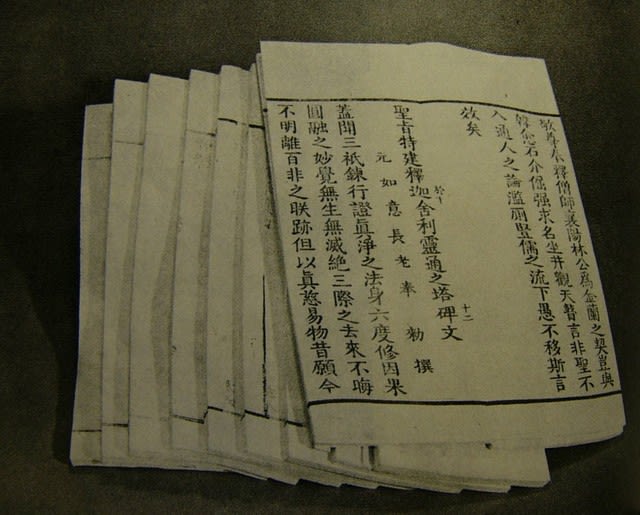 敬尊奉釋僧師襄陽林公為金蘭之契豈與
韓愈石介倔强求名坐井觀天瞽言非聖不
入通人之論濫廁豎儒之流下愚不移斯言
效矣
十二
聖旨特建釋迦舍利靈通之塔碑文
元如意長老奉勅撰
蓋聞三祇鍊行證眞淨之法身六度修因果
圓融之妙覺無生無滅絕三際之去來不晦
不明離百非之眹跡但以眞慈易物昔願今